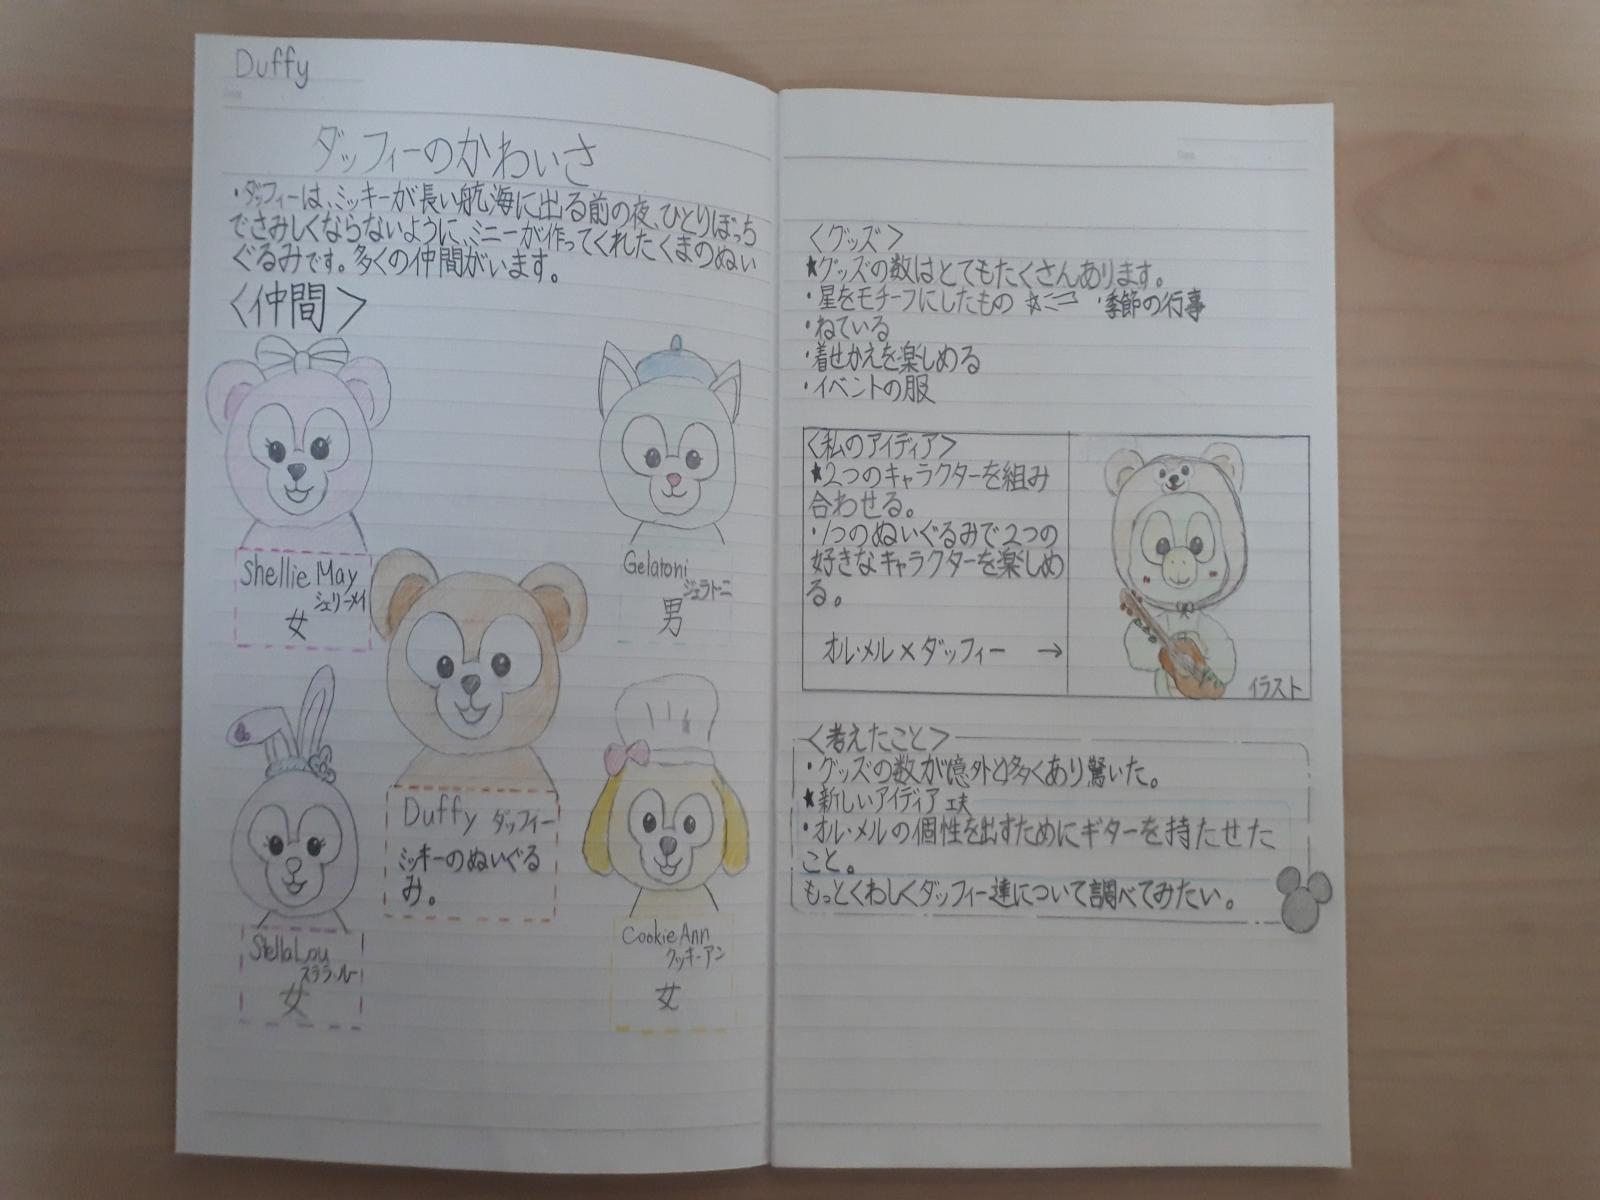 Duffy
ダッフィーのかわいさ
・ダッフィーは、ミッキーが長い航海に出る前の夜、ひとりぼっち
でさみしくならないように、ミニーが作ってくれたくまのぬい
ぐるみです。多くの仲間がいます。
<仲間>
Shellie May
シェリーメイ
女
Gelatoni
ジェラトーニ
男
Duffy ダッフィー
ミッキーのぬいぐる
み。
StellaLou
ステラ・ルー
女
CookieAnn
クッキー・アン
女
<グッズ>
★グッズの数はとてもたくさんあります。
・星をモチーフにしたもの ・季節の行事
・ねている
・着せかえを楽しめる
・イベントの服
<私のアイディア>
★2つのキャラクターを組み
合わせる。
・1つのぬいぐるみで2つの
好きなキャラクターを楽しめ
る。
オル・メル×ダッフィー →
イラスト
<考えたこと>
・グッズの数が意外と多くあり驚いた。
★新しいアイディア 工夫
・オル・メルの個性を出すためにギターを持たせた
こと。
もっとくわしくダッフィー達について調べてみたい。